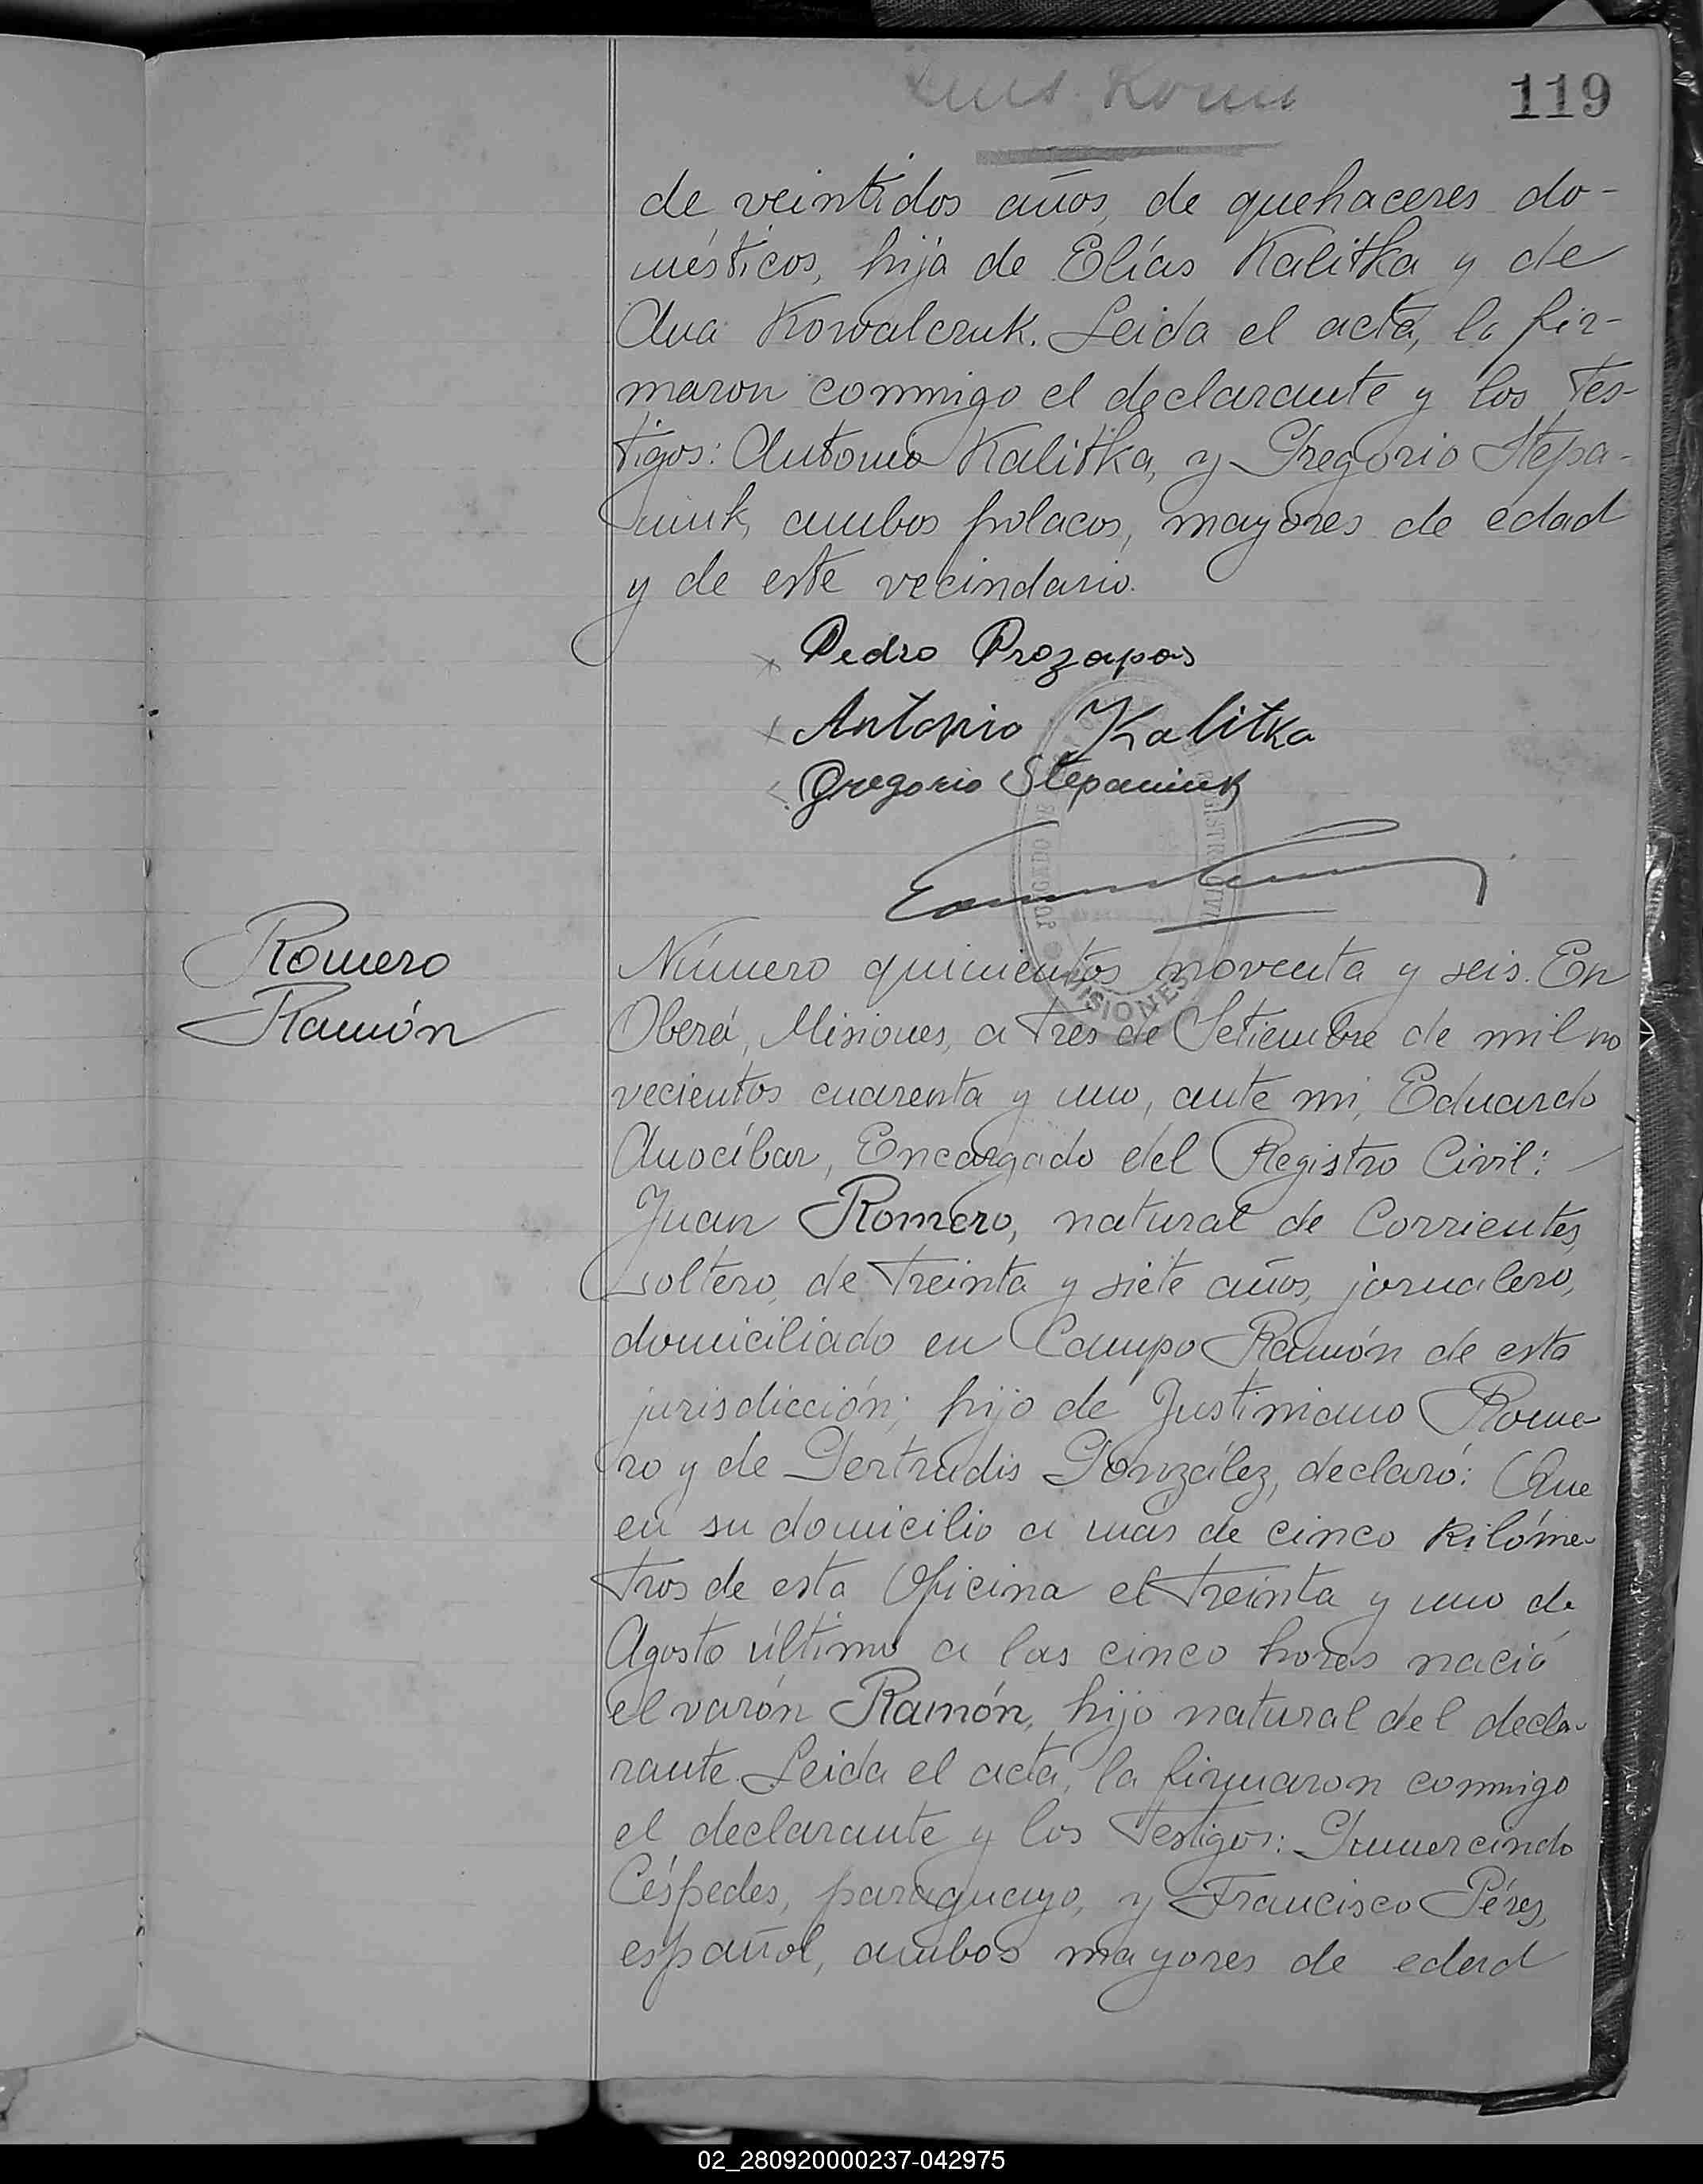 119
de veintidos años, de quehaceres do-
mésticos, hija de Elías Kalitka y de
Ana Kowalczuk. Leida el acta, la fir-
maron conmigo el declarante y los tes-
tigos: Antonio Kalitka, y Gregorio Stepa-
niuk, ambos polacos, mayores de edad
y de este vecindario.
Pedro Prozapas
Antonio Kalitka
Gregorio Stepaniuk
MISIONES
Romero
Ramón
Número quinientos noventa y seis. En
Oberá, Misiones, a tres de Setiembre de mil no
vecientos cuarenta y uno, ante mi, Eduardo
Anocíbar, Encargado del Registro Civil:
Juan Romero, natural de Corrientes,
soltero, de treinta y siete años, jornalero,
domiciliado en Campo Ramón de esta
jurisdicción; hijo de Justiniano Rome-
ro y de Gertrudis González, declaró: Que
en su domicilio a mas de cinco kilóme-
tros de esta Oficina el treinta y uno de
Agosto último a las cinco horas nació
el varón Ramón, hijo natural del decla-
rante. Leida el acta, la firmaron conmigo
el declarante y los testigos: Gumercindo
Céspedes, paraguayo, y Francisco Péres,
español, ambos mayores de edad
02_280920000237-042975